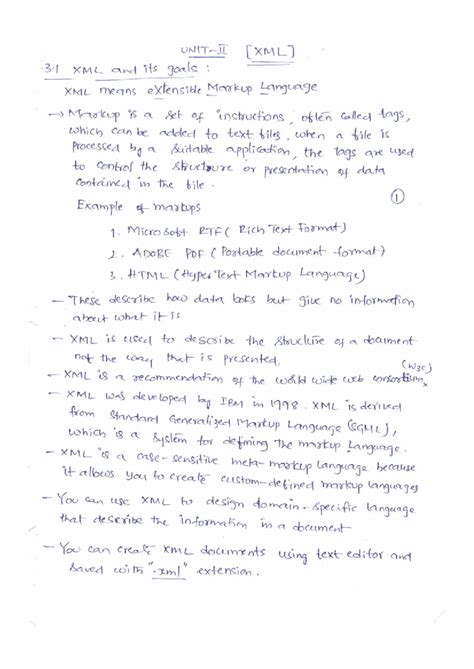 UNIT-II [XML]
3.1 XML and its goals :
XML means eXtensible Markup Language
→ Markup is a set of instructions, often called tags,
which can be added to text files, when a file is
processed by a suitable application, the tags are used
to control the structure or presentation of data
contained in the file.
①
Example of markups
1. Microsoft RTF ( Rich Text Format)
2. ADOBE PDF (Portable document format)
3. HTML (HyperText Markup Language)
- These describe how data looks but give no information
about what it is
- XML is used to describe the structure of a document
not the way that is presented.
(W3C)
- XML is a recommendation of the world wide web consortium
- XML was developed by IBM in 1998. XML is derived
from Standard Generalized Markup Language (SGML),
which is a system for defining the markup Language.
- XML is a case-sensitive meta-markup language because
it allows you to create custom-defined markup languages
- You can use XML to design domain-specific language
that describe the information in a document
- You can create XML documents using text editor and
saved with ".xml" extension.